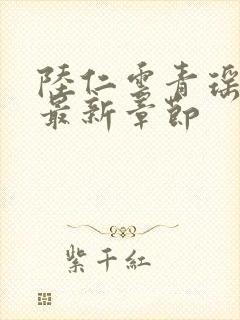 陸仁雲青瑤
最新章節
紫千紅